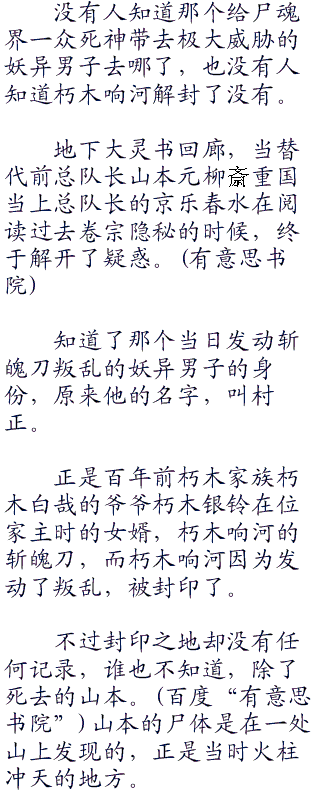 没有人知道那个给尸魂
界一众死神带去极大威胁的
妖异男子去哪了，也没有人
知道朽木响河解封了没有。
地下大灵书回廊，当替
代前总队长山本元柳斎重国
当上总队长的京乐春水在阅
读过去卷宗隐秘的时候，终
于解开了疑惑。(有意思书
院)
知道了那个当日发动斩
魄刀叛乱的妖异男子的身
份，原来他的名字，叫村
正。
正是百年前朽木家族朽
木白哉的爷爷朽木银铃在位
家主时的女婿，朽木响河的
斩魄刀，而朽木响河因为发
动了叛乱，被封印了。
不过封印之地却没有任
何记录，谁也不知道，除了
死去的山本。(百度“有意思
书院”)山本的尸体是在一处
山上发现的，正是当时火柱
冲天的地方。